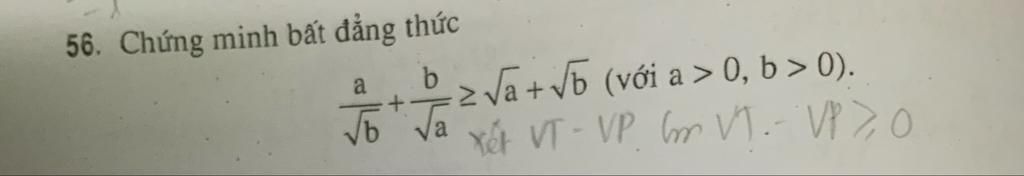 56. Chứng minh bất đẳng thức
a/√b + b/√a ≥ √a + √b (với a > 0, b > 0).
xét VT - VP Cm VT - VP ≥ 0